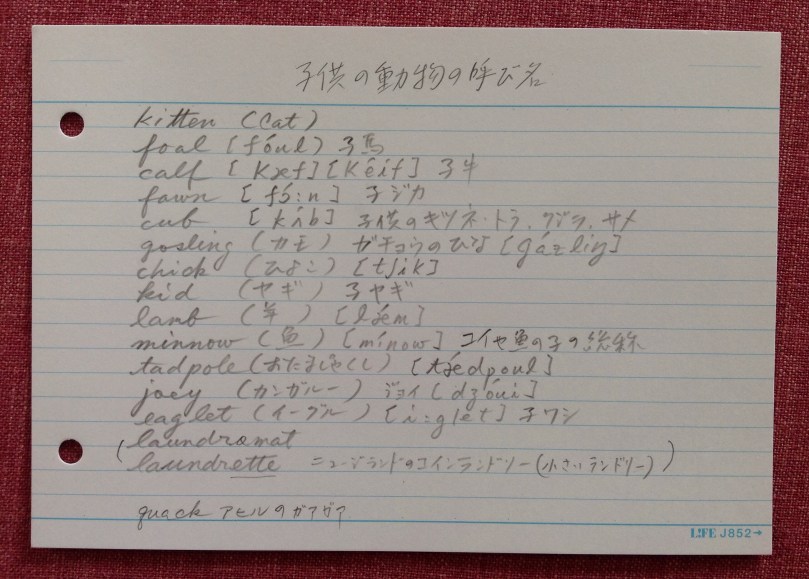 子供の動物の呼び名
kitten (Cat)
foal [fóul) 子馬
calf [kæf] [Kéif] 子牛
fawn [fɔ́:n] 子ジカ
cub [kʌ́b] 子供のキツネ・トラ、クジラ、サメ
gosling (カモ) ガチョウのひな [gázliŋ]
chick (ひよこ) [tʃik]
kid (ヤギ) 子ヤギ
lamb (羊) [lǽm]
minnow (魚) [mínow] コイや魚の子の総称
tadpole (おたまじゃくし) [tǽdpoul]
joey (カンガルー) ジョイ [dʒóui]
eaglet (イーグル) [i:glet] 子ワシ
(laundromat
laundrette ニュージランドのコインランドリー(小さいランドリー))
quack アヒルのガアガア
LIFE J852→